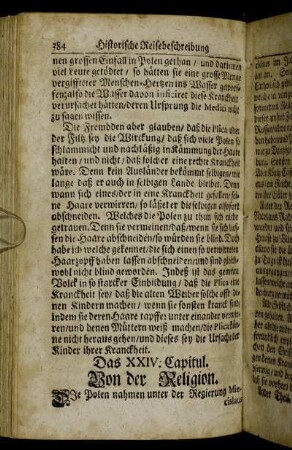 284 Historische Reisebeschreibung
nen grossen Einfall in Polen gethan / und darinnen
viel Leute getödtet / so hätten sie eine grosse Menge
vergiffteter Menschen-Hertzen ins Wasser geworf-
fen / also die Wasser davon inficiret diese Kranckheit
verursachet hätten / deren Ursprung die Medici nicht
zu sagen wissen.
Die Frembden aber glauben / daß die Plica oder
der Filtz sey die Würckung / daß sich viele Polen so
schlammicht und nachläßig in Kämmung der Haare
halten / und nicht / daß solcher eine rechte Kranckheit
wäre. Denn kein Ausländer bekömmt selbigen / so
lange daß er auch in selbigen Lande bleibet. Denn
wann sich eines / der in eine Kranckheit gefallen / sei-
ne Haare verwirren / so läßet er dieselbigen alsofort
abschneiden. Welches die Polen zu thun sich nicht
getrauen. Denn sie vermeinen / daß / wenn sie schlies-
sen die Haare abschneiden / so würden sie blind. Doch
habe ich welche gekennet / die sich einen so verwirrten
Haarzopff haben lassen abschneiden / und sind gleich-
wohl nicht blind geworden. Indeß ist das gemeine
Volck in so starcker Einbildung / daß die Plica eine
Kranckheit sey / daß die alten Weiber solche offt de-
nen Kindern machen / wenn sie sonsten kranck sind /
indem sie deren Haare tapffer unter einander verwir-
ren / und denen Müttern weiß machen / die Plica kön-
ne nicht heraus gehen / und dieses sey die Ursache der
Kinder ihrer Kranckheit.
Das XXIV. Capitul.
Von der Religion.
Die Polen nahmen unter der Regierung Mie-
cislaus